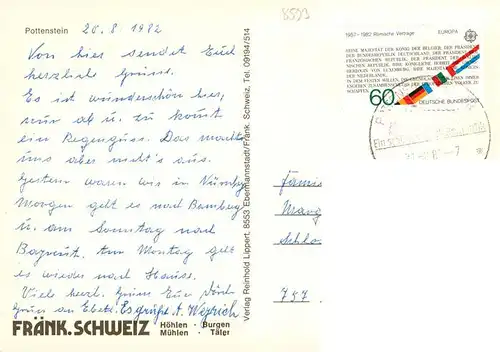 Pottenstein 20.8 1982
Von hier sendet Euch
herzlich Grüsse.
Es ist wunderschön hier,
nur ab u. zu kommt
ein Regenguss. Das macht
uns aber nicht's aus.
Gestern waren wir in Nürnberg
Morgen geht es nach Bamberg
u. am Sonntag nach
Bayreut. Am Montag geht
es wieder nach Hause.
Viele herzl. Grüsse Euer
Gruss an Es grüßt A. Weyrich
FRÄNK. SCHWEIZ
Höhlen · Burgen
Mühlen · Täler
Verlag Reinhold Lippert, 8553 Ebermannstadt/Fränk. Schweiz, Tel. 09194/514
8553
1957-1982 Römische Verträge EUROPA
SEINE MAJESTÄT DER KÖNIG DER BELGIER, DER PRÄSIDENT
DER BUNDESREPUBLIK DEUTSCHLAND, DER PRÄSIDENT DER
FRANZÖSISCHEN REPUBLIK, DER PRÄSIDENT DER ITALIENISCHEN REPUBLIK, IHRE KÖNIGLICHE HOHEIT
HERZOGIN VON LUXEMBURG, IHRE MAJESTÄT
DER NIEDERLANDE,
60
DEUTSCHE BUNDESPOST
757.